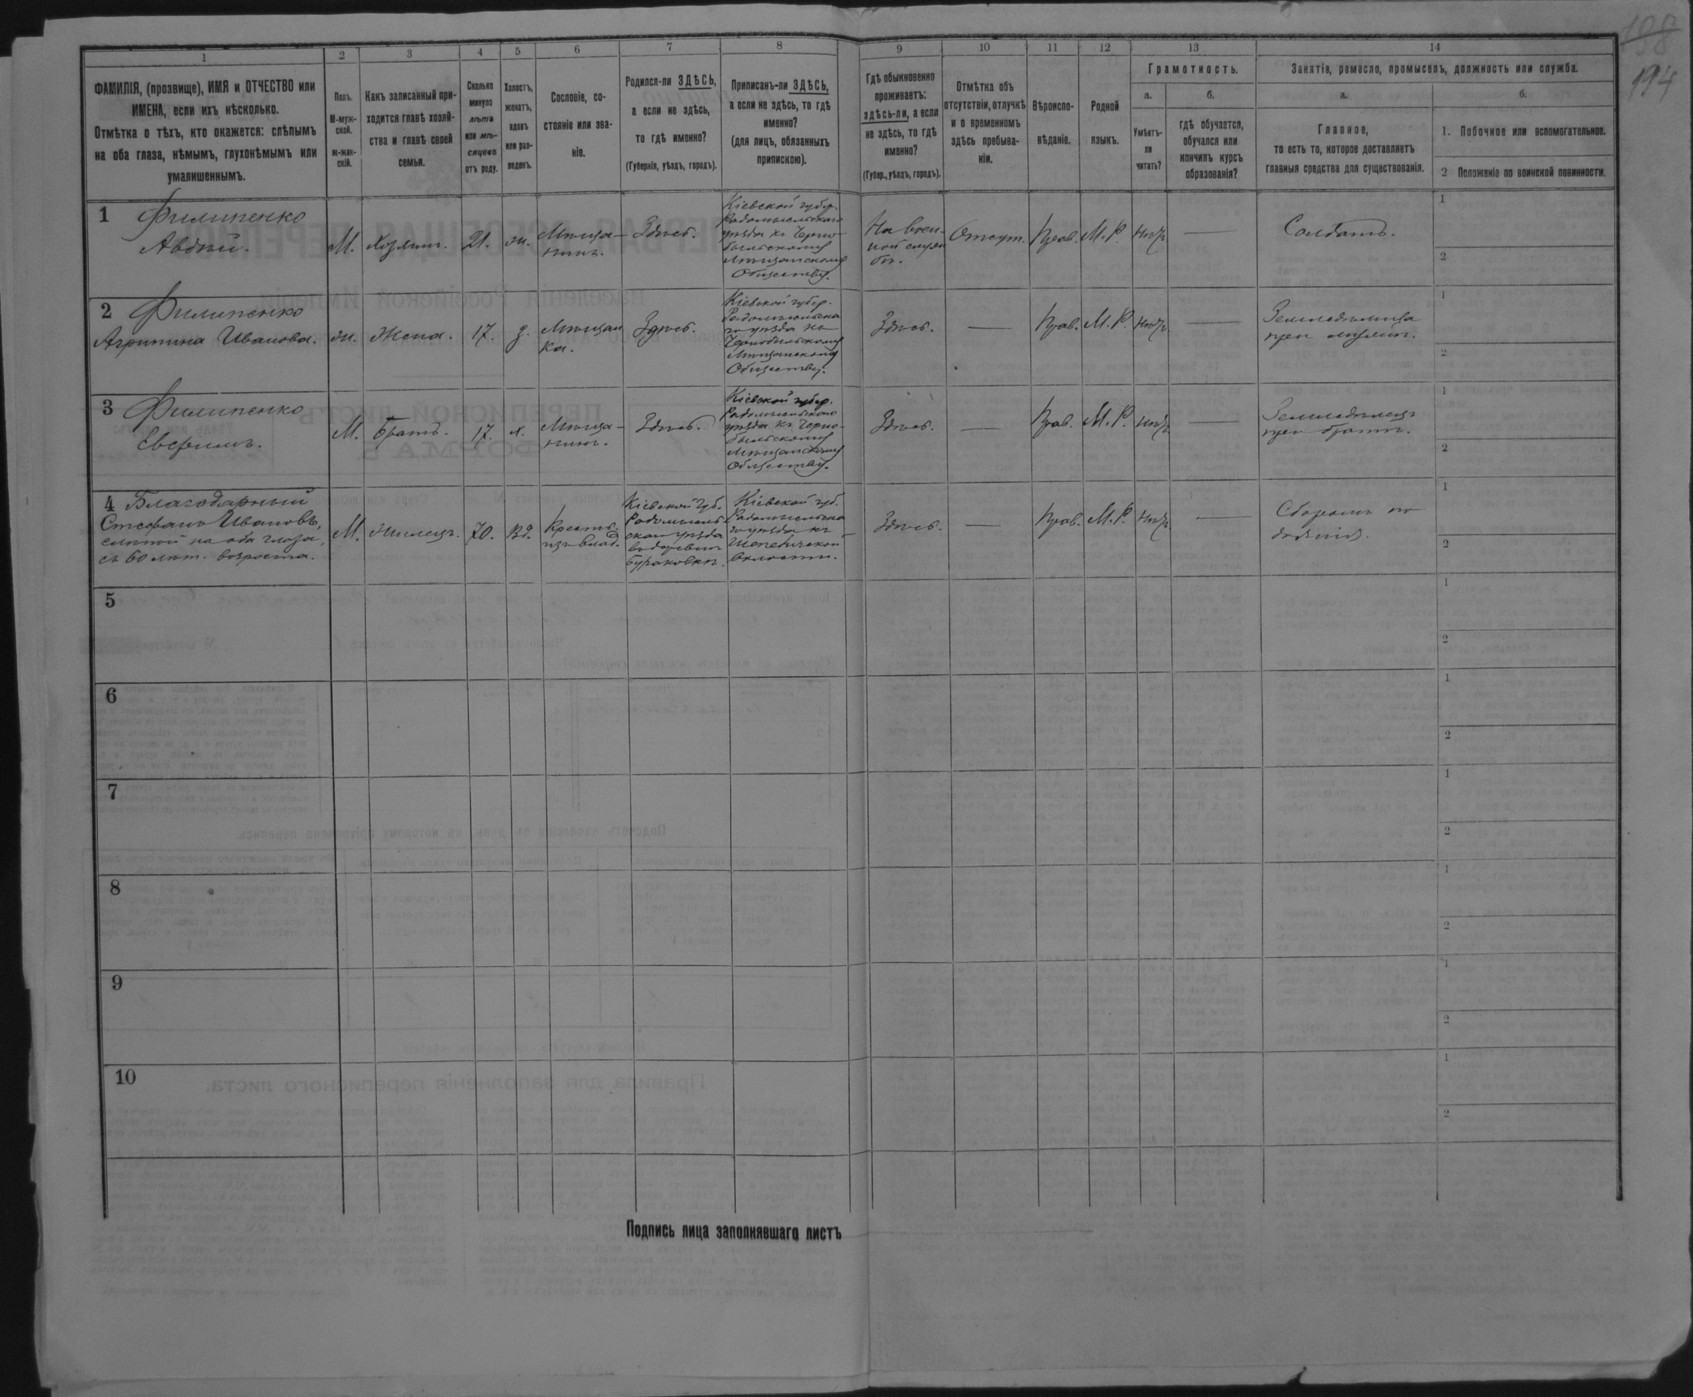 198
194
1
2
3
4
5
6
7
8
9
10
11
12
13
14
ФАМИЛІЯ, (прозвище), ИМЯ и ОТЧЕСТВО или
ИМЕНА, если ихъ нѣсколько.
Отмѣтка о тѣхъ, кто окажется: слѣпымъ
на оба глаза, нѣмымъ, глухонѣмымъ или
умалишеннымъ.
Полъ.
М-муж-
ской.
ж-жен-
скій.
Какъ записанный при-
ходится главѣ хозяй-
ства и главѣ своей
семьи.
Сколько
минуло
лѣтъ
или мѣ-
сяцевъ
отъ роду.
Холостъ,
женатъ,
вдовъ
или раз-
веденъ.
Сословіе, со-
стояніе или зва-
ніе.
Родился-ли ЗДѢСЬ,
а если не здѣсь,
то гдѣ именно?
(Губернія, уѣздъ, городъ).
Приписанъ-ли ЗДѢСЬ,
а если не здѣсь, то гдѣ
именно?
(для лицъ, обязанныхъ
припискою).
Гдѣ обыкновенно
проживаетъ:
здѣсь-ли, а если
не здѣсь, то гдѣ
именно?
(Губер., уѣздъ, городъ).
Отмѣтка объ
отсутствіи, отлучкѣ
и о временномъ
здѣсь пребыва-
ніи.
Вѣроиспо-
вѣданіе.
Родной
языкъ.
Грамотность.
а.
Умѣетъ-
ли
читать?
б.
гдѣ обучается,
обучался или
кончилъ курсъ
образованія?
Занятіе, ремесло, промыселъ, должность или служба.
а.
Главное,
то есть то, которое доставляетъ
главныя средства для существованія.
б.
1. Побочное или вспомогательное.
2 Положеніе по воинской повинности.
1 Филипенко
Авдѣй.
М.
Хозяин.
21.
ж.
Мѣща-
нинъ.
Здѣсь.
Кіевской губер.
Радомысльскаго
уѣзда къ Черно-
быльскому
Мѣщанскому
Обществу.
На воен-
ной служ
бѣ.
Отсут.
Прав.
М. Р.
нѣтъ
—
Солдатъ.
1
2
2 Филипенко
Агрипина Иванова.
ж.
Жена.
17.
з.
Мѣщан
ка.
Здѣсь.
Кіевской губер.
Радомысльска
го уѣзда къ
Чернобыльскому
Мѣщанскому
Обществу.
Здѣсь.
—
Прав.
М. Р.
нѣтъ
—
Земледѣлица
при мужѣ.
1
2
3 Филипенко
Евфимъ.
М.
Братъ.
17.
х.
Мѣща-
нинъ.
Здѣсь.
Кіевской губер.
Радомысльскаго
уѣзда къ Черно-
быльскому
Мѣщанскому
Обществу.
Здѣсь.
—
Прав.
М. Р.
нѣтъ
—
Земледѣлецъ
при братѣ.
1
2
4 Благодарный
Стефанъ Ивановъ,
слѣпой на оба глаза,
съ 60 лѣт. возроста.
М.
Жилецъ.
70.
вд.
Крестьь.
изъ влад.
Кіевской губ.
Радомысль
скаго уѣзда
въ деревнѣ
Бураковкѣ.
Кіевской губ.
Радомысльска
го уѣзда къ
Шепеличской
волости.
Здѣсь.
—
Прав.
М. Р.
нѣтъ
—
1
2
5
1
2
6
1
2
7
1
2
8
1
2
9
1
2
10
1
2
Подпись лица заполнявшаго листъ